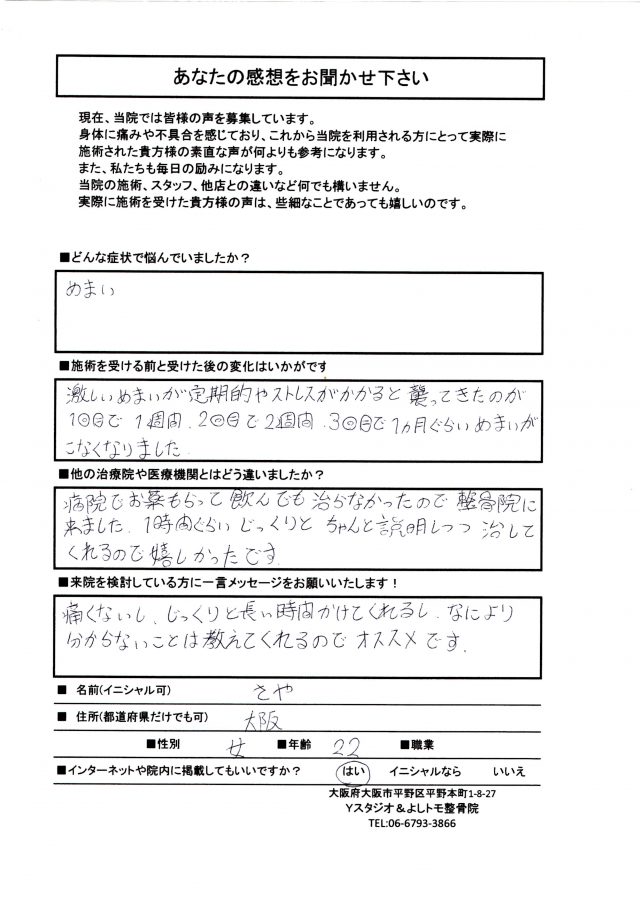 あなたの感想をお聞かせ下さい
現在、当院では皆様の声を募集しています。
身体に痛みや不具合を感じており、これから当院を利用される方にとって実際に
施術された貴方様の素直な声が何よりも参考になります。
また、私たちも毎日の励みになります。
当院の施術、スタッフ、他店との違いなど何でも構いません。
実際に施術を受けた貴方様の声は、些細なことであっても嬉しいのです。
■どんな症状で悩んでいましたか？
めまい
■施術を受ける前と受けた後の変化はいかがです
激しいめまいが定期的やストレスがかかると襲ってきたのが
1回目で1週間、2回目で2週間、3回目で1ヵ月ぐらいめまいが
こなくなりました。
■他の治療院や医療機関とはどう違いましたか？
病院でお薬もらって飲んでも治らなかったので整骨院に
来ました。1時間ぐらいじっくりとちゃんと説明しつつ治して
くれるので嬉しかったです。
■来院を検討している方に一言メッセージをお願いいたします！
痛くないし、じっくりと長い時間かけてくれるし、なにより
分からないことは教えてくれるのでオススメです。
■ 名前(イニシャル可) さや
■ 住所(都道府県だけでも可) 大阪
■性別 女 ■年齢 22 ■職業
■インターネットや院内に掲載してもいいですか？ はい イニシャルなら いいえ
大阪府大阪市平野区平野本町1-8-27
Yスタジオ＆よしトモ整骨院
TEL:06-6793-3866